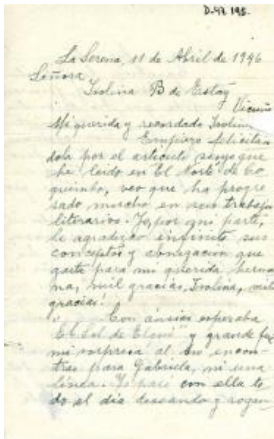 D-43 195.
La Serena, 11 de Abril de 1946
Señora
Isolina B de Estay
Vicuña
Mi querida y recordada Isolina
Empiezo felicitan
dola por el artículo suyo que
he leido en El Norte de Co
quimbo, veo que ha progre
sado mucho en sus trabajos
literarios. Yo, por mi parte,
le agradezco infinito sus
conceptos y abnegación que
gasta para mi querida herma
na, mil gracias, Isolina, mil
gracias!
Con ánsias esperaba
El Sol de Elqui" y grande fue
mi sorpresa al no encon
trar para Gabriela, ni una
línea. Yo paso con ella to
do el día deseando y rogan